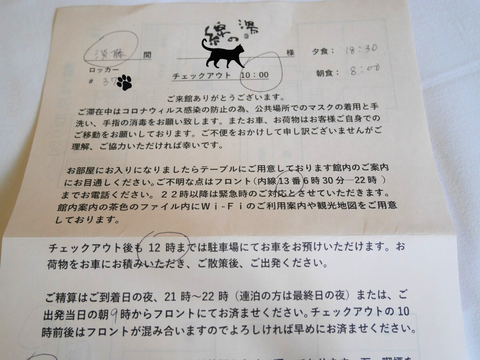 緑の湯
須藤 間 様 夕食: 18:30
ロッカー
# 37 チェックアウト 10:00 朝食: 8:00
ご来館ありがとうございます。
ご滞在中はコロナウィルス感染の防止の為、公共場所でのマスクの着用と手
洗い、手指の消毒をお願い致します。またお車、お荷物はお客様ご自身での
ご移動をお願いしております。ご不便をおかけして申し訳ございませんがご
理解、ご協力いただければ幸いです。
お部屋にお入りになりましたらテーブルにご用意しております館内のご案内
にお目通しください。ご不明な点はフロント(内線13番6時30分―22時)
までお電話ください。22時以降は緊急時のご対応とさせていただきます。
館内案内の茶色のファイル内にWi-Fiのご利用案内や観光地図をご用意
しております。
チェックアウト後も12時までは駐車場にてお車をお預けいただけます。お
荷物をお車にお積みいただき、ご散策後、ご出発ください。
ご精算はご到着日の夜、21時~22時(連泊の方は最終日の夜)または、ご
出発当日の朝9時からフロントにてお済ませください。チェックアウトの10
時前後はフロントが混み合いますのでよろしければ早めにお済ませください。